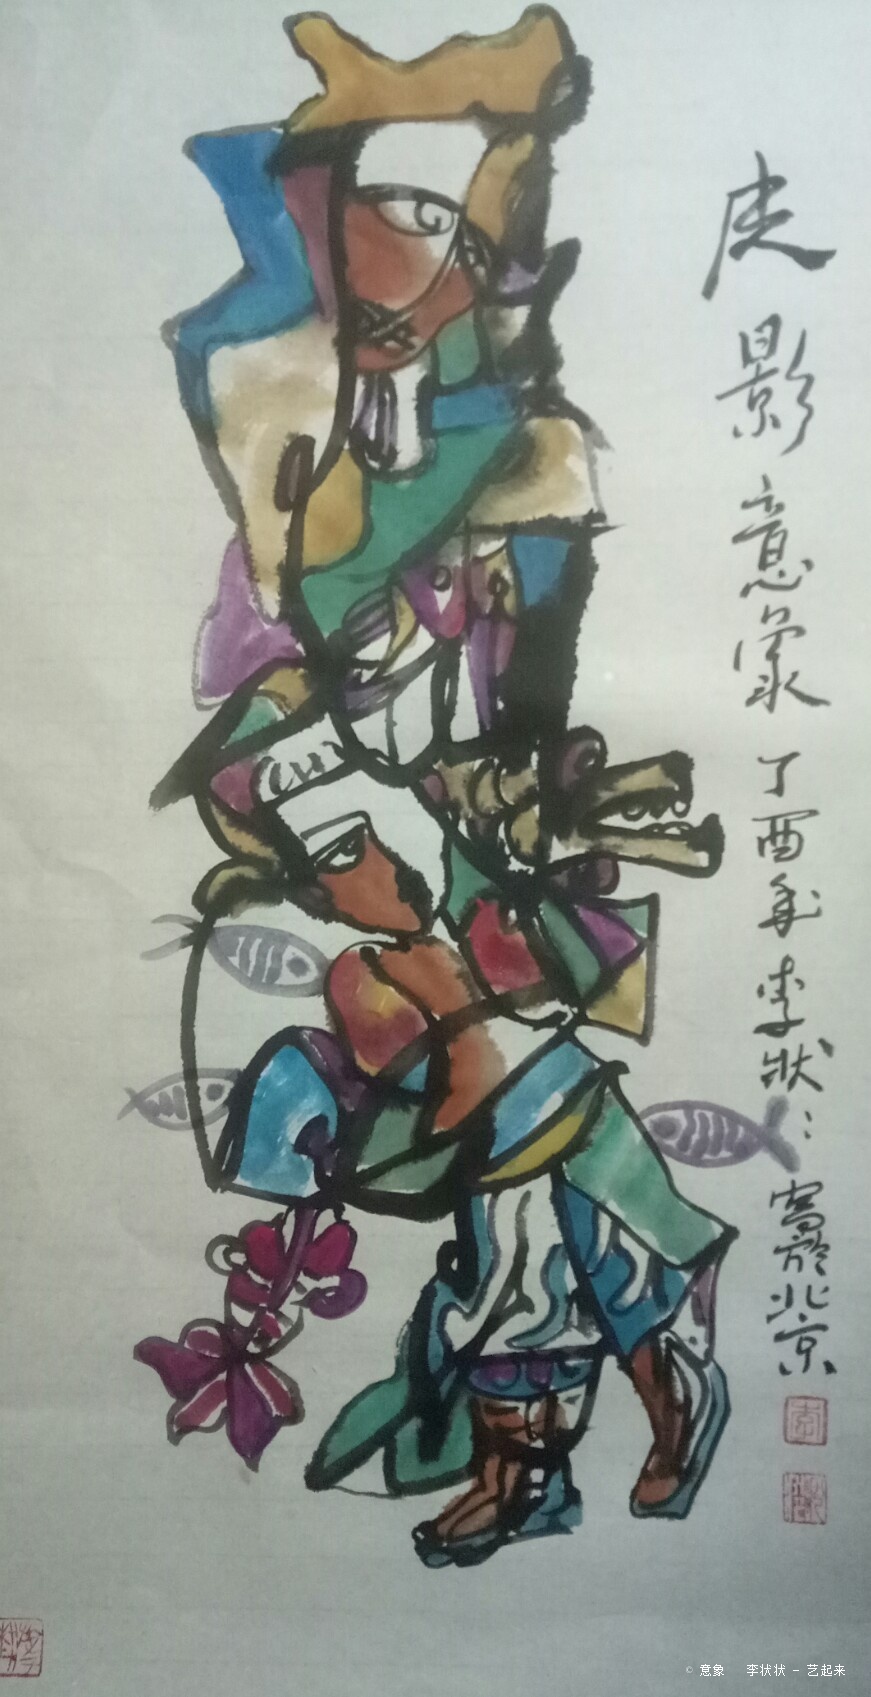 皮影意象 丁酉年 李狀： 寫於北京
© 意象 李状状 - 艺起来